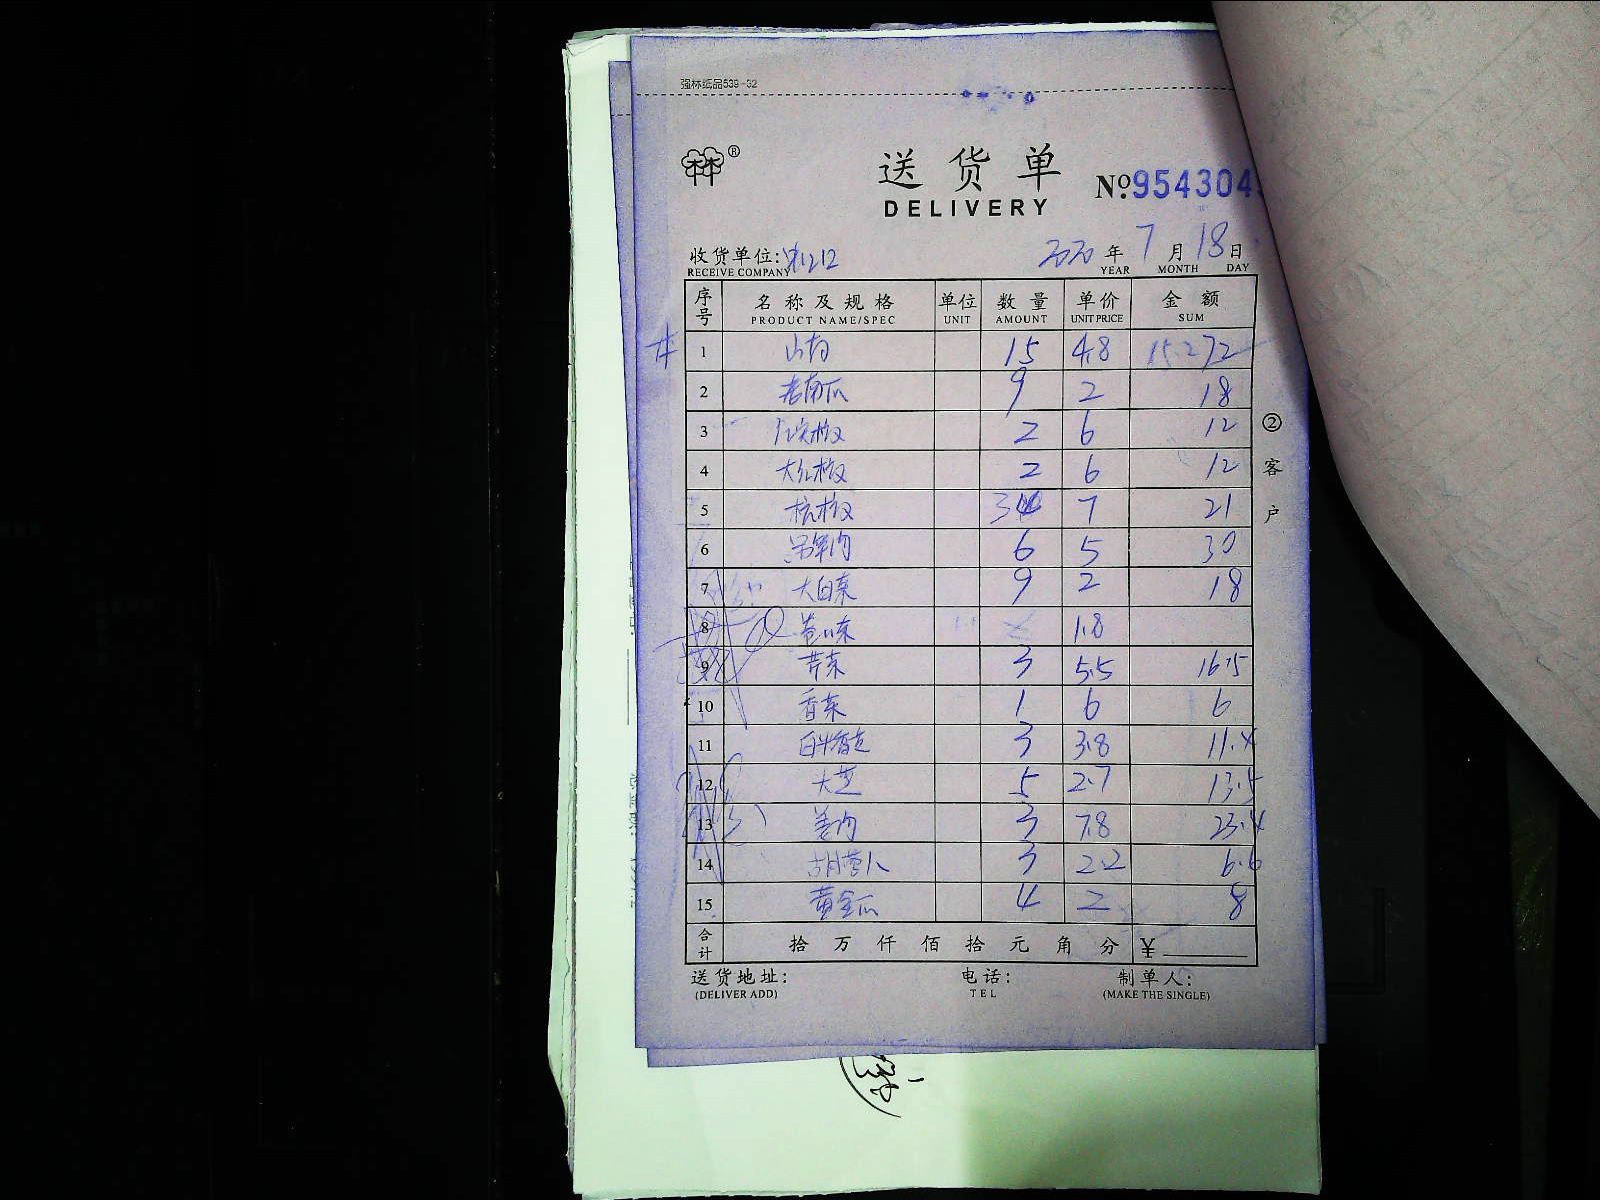 强林纸品539-32
送货单
№9543045
DELIVERY
收货单位: 2020年7月18日
RECEIVE COMPANY YEAR MONTH DAY
序号 名称及规格 单位 数量 单价 金额
PRODUCT NAME/SPEC UNIT AMOUNT UNIT PRICE SUM
1 15 4.8 72
2 老南瓜 9 2 18
3 2 6 12
4 大红椒 2 6 12
5 杭椒 3 7 21
6 6 5 30
7 大白菜 9 2 18
8 1.8
9 芹菜 3 5.5 16.5
10 香菜 1 6 6
11 3 3.8 11.4
12 大芝 5 2.7 13.5
13 姜肉 3 7.8 23.4
14 胡萝卜 3 2.2 6.6
15 黄金瓜 4 2 8
合计 拾 万 仟 佰 拾 元 角 分 ¥
② 客户
送货地址: 电话: 制单人:
(DELIVER ADD) TEL (MAKE THE SINGLE)